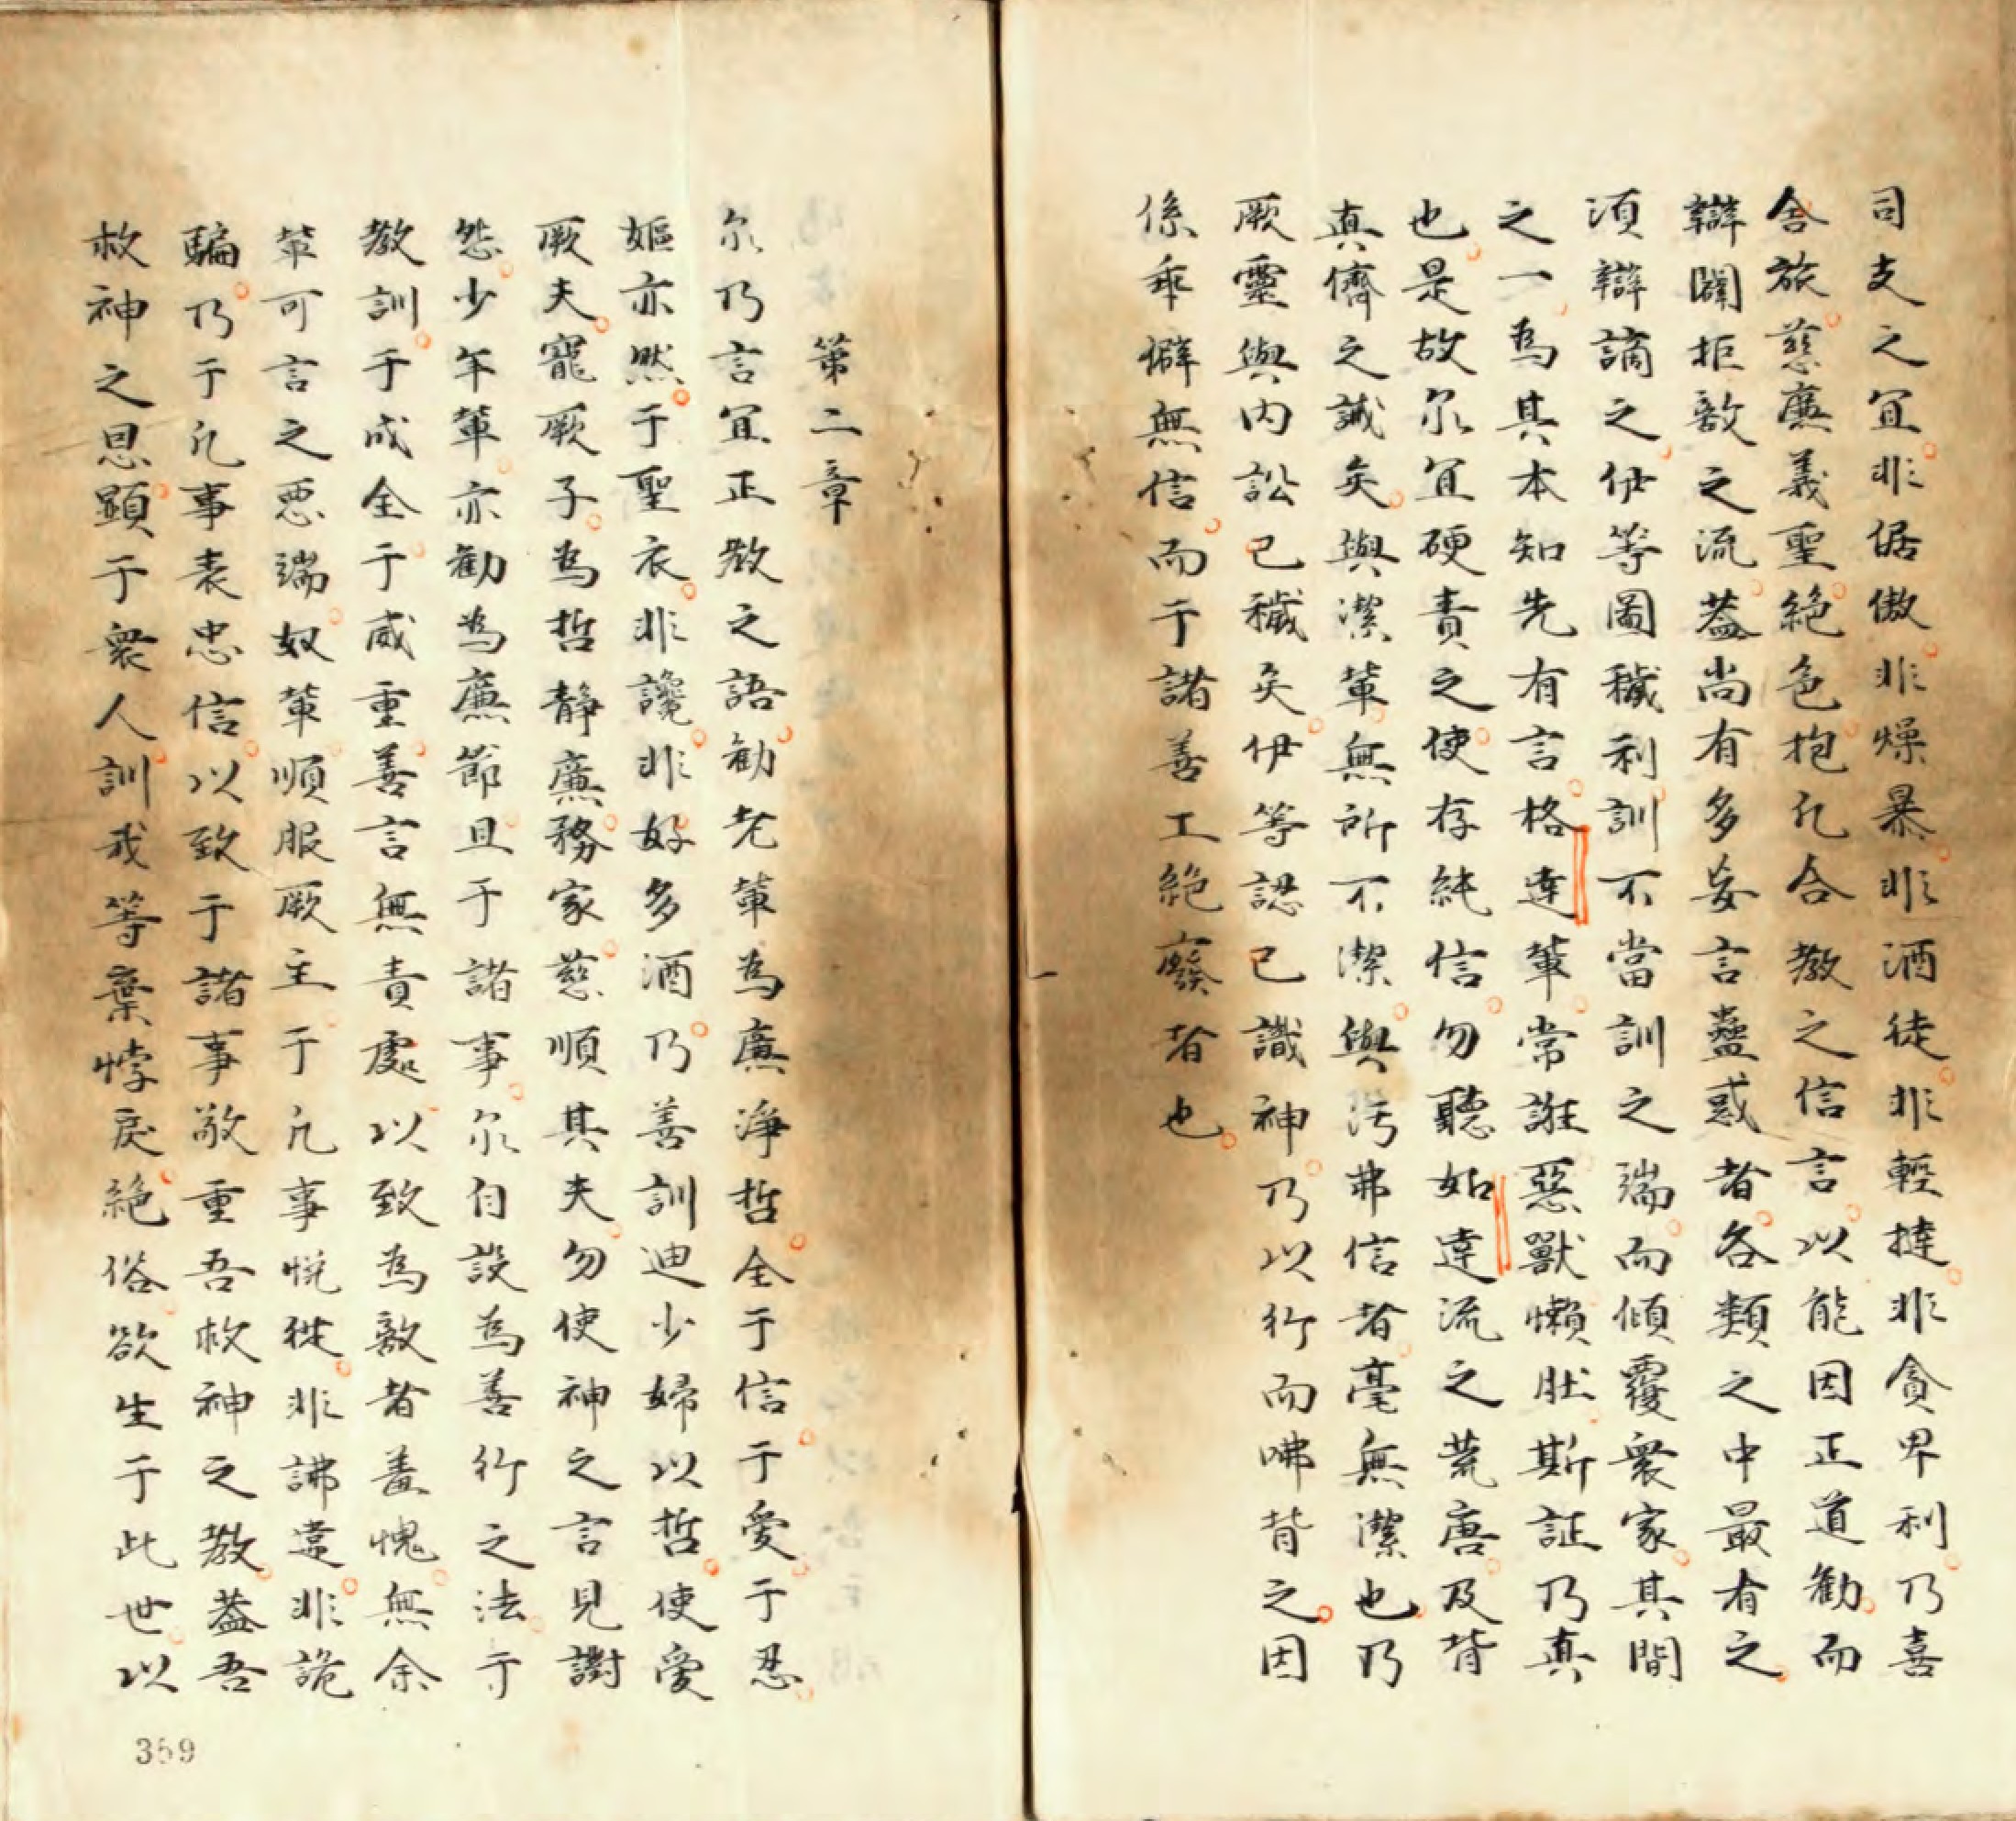 司支之宜非倨傲非燥暴非酒徒非輕撻非貪卑利乃喜
舍旅慈廉義聖絕色抱凡合教之信言以能因正道勸而
辯闢拒敵之流蓋尚有多妄言蠱惑者各類之中最有之
須辯謫之伊等圖穢利訓不當訓之端而傾覆衆家其間
之一為其本知先有言格達輩常誑惡獸懶肚斯証乃真
也是故尔宜硬責之使存純信勿聽如達流之荒唐及背
真儕之誡矣與潔輩無所不潔與污弗信者毫無潔也乃
厥靈與內訟已穢矣伊等認已識神乃以行而咈背之因
係乖僻無信而于諸善工絕廢者也
第二章
尔乃言宜正教之語勸老輩為廉淨哲全于信于愛于忍
嫗亦然于聖衣非讒非好多酒乃善訓迪少婦以哲使愛
厥夫寵厥子為哲靜廉務家慈順其夫勿使神之言見謝
怨少年輩亦勸為廉節且于諸事尔自設為善行之法于
教訓于成全于威重善言無責處以致為敵者羞愧無余
輩可言之惡端奴輩順服厥主于凡事悅從非誹違非詭
騙乃于凡事表忠信以致于諸事敬重吾救神之教蓋吾
救神之恩顯于衆人訓我等棄悖戾絕俗欲生于此世以
359